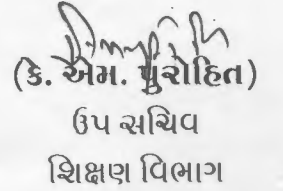 (કે. એમ. પુરોહિત)
ઉપ સચિવ
શિક્ષણ વિભાગ